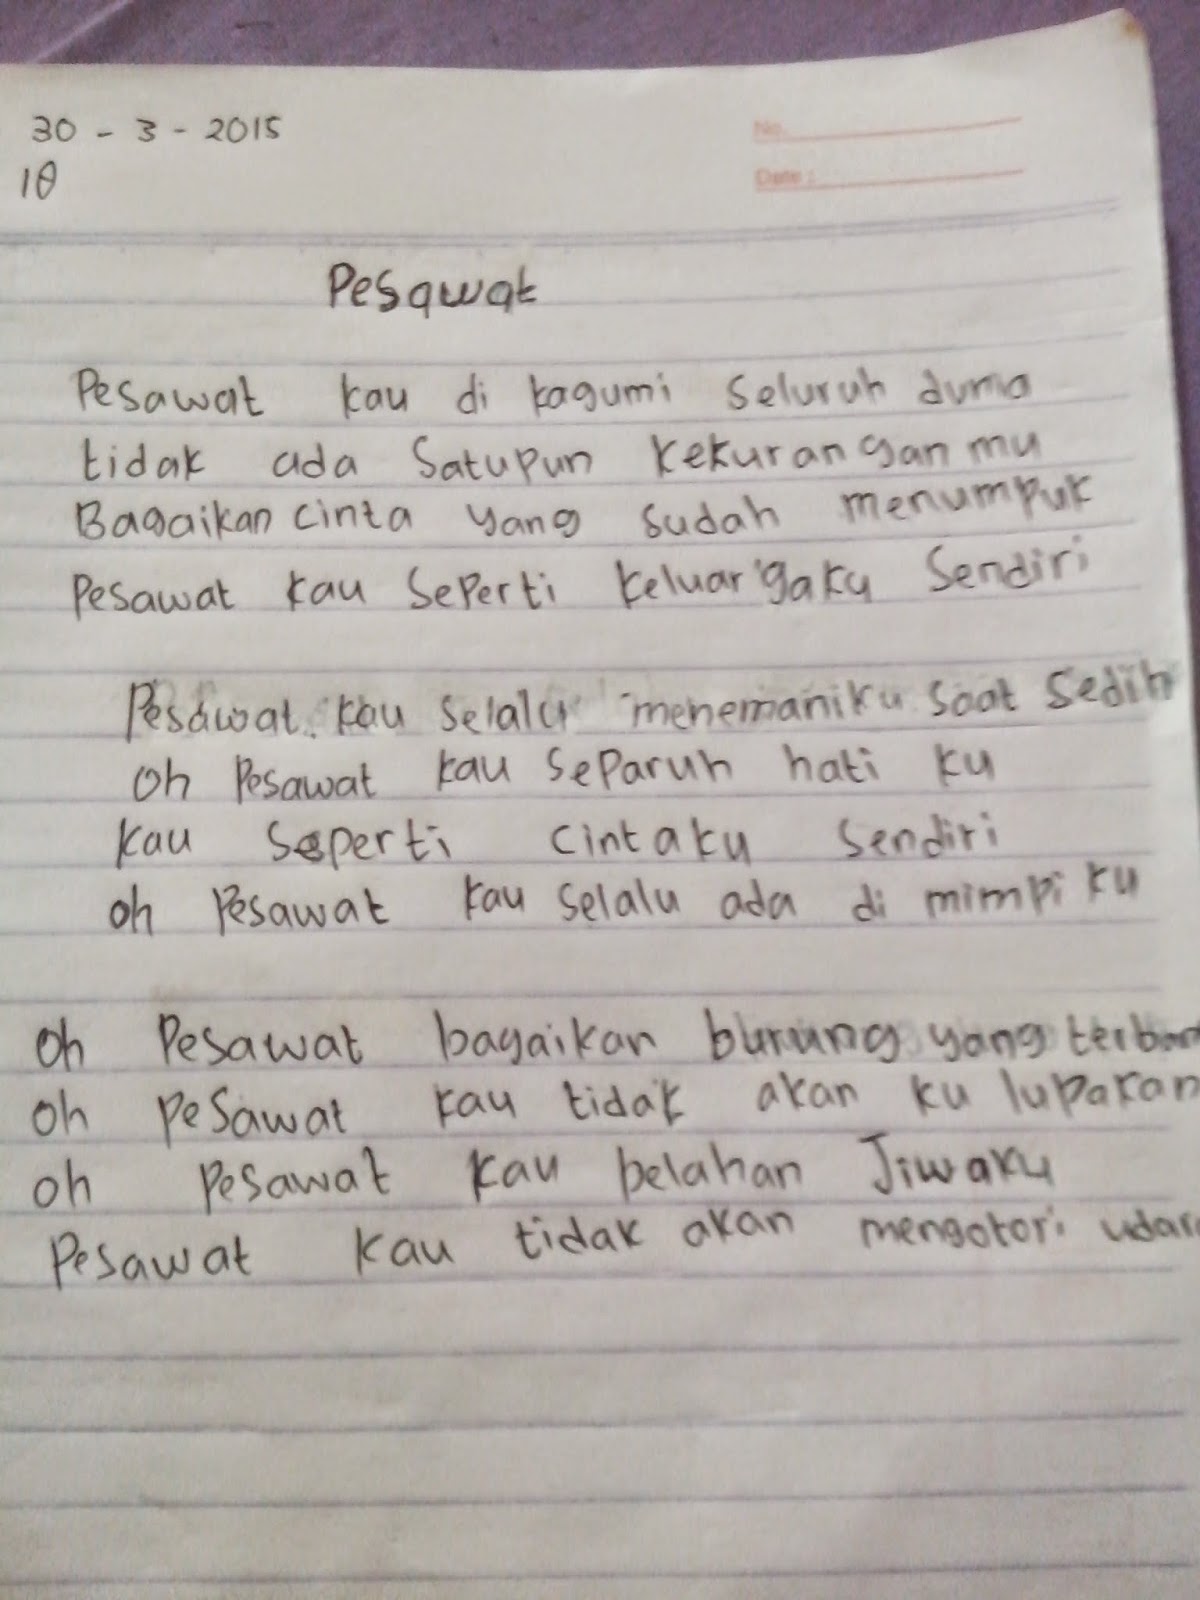 30 - 3 - 2015
No.
Date :
10
Pesawat
Pesawat kau di kagumi seluruh dunia
tidak ada satupun kekurangan mu
Bagaikan cinta yang sudah menumpuk
Pesawat kau seperti keluargaku sendiri
Pesawat kau selalu menemaniku saat sedih
oh Pesawat kau separuh hati ku
kau seperti cintaku sendiri
oh Pesawat kau selalu ada di mimpi ku
oh Pesawat bagaikan burung yang terban
oh pesawat kau tidak akan ku lupakan
oh pesawat kau belahan Jiwaku
Pesawat kau tidak akan mengotori udara